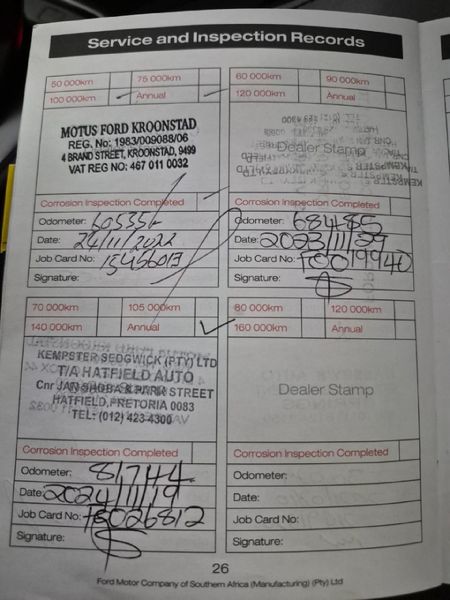 Service and Inspection Records
50 000km 75 000km
100 000km Annual
MOTUS FORD KROONSTAD
REG. No: 1983/009088/06
4 BRAND STREET, KROONSTAD, 9499
VAT REG NO: 467 011 0032
Corrosion Inspection Completed
Odometer:
Date: 24/11/2022
Job Card No:
Signature:
60 000km 90 000km
120 000km Annual
Dealer Stamp
Corrosion Inspection Completed
Odometer: 68485
Date: 2023/11/29
Job Card No:
Signature:
70 000km 105 000km
140 000km Annual
KEMPSTER SEDGWICK (PTY) LTD
T/A HATFIELD AUTO
Cnr JAN SHOBA & PARK STREET
HATFIELD, PRETORIA 0083
TEL: (012) 423-4300
Corrosion Inspection Completed
Odometer: 81744
Date: 2024/11/19
Job Card No:
Signature:
80 000km 120 000km
160 000km Annual
Dealer Stamp
Corrosion Inspection Completed
Odometer:
Date:
Job Card No:
Signature:
26
Ford Motor Company of Southern Africa (Manufacturing) (Pty) Ltd